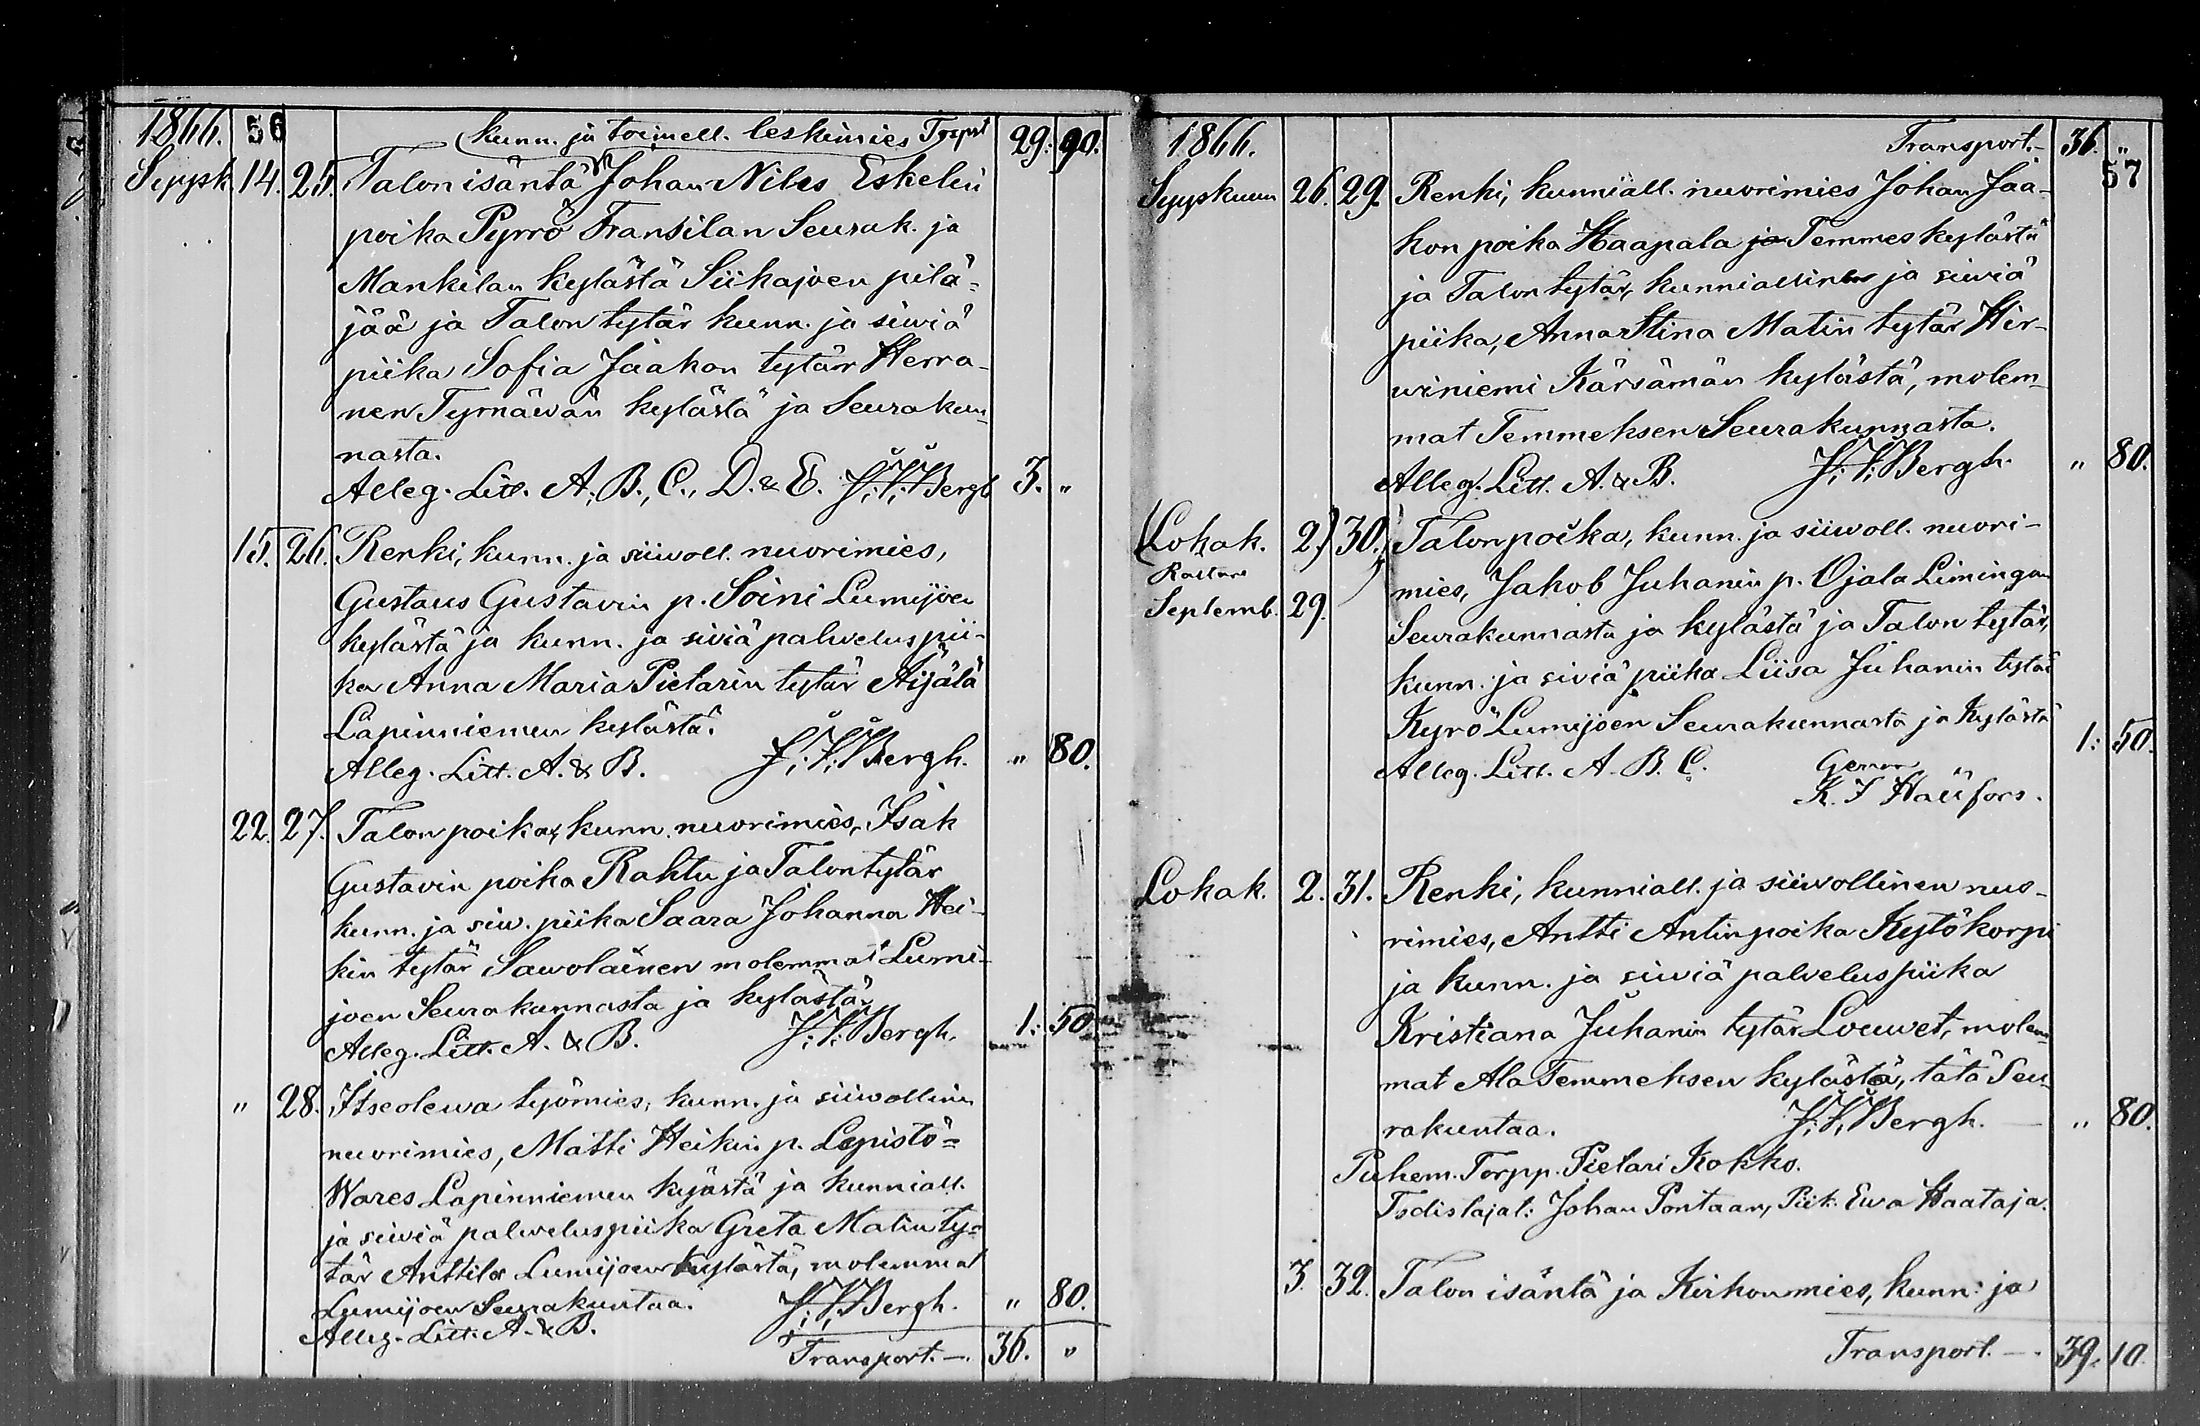 1866. 56 kunn. ja toimell. leskimies Trspt 29: 90.
Syysk. 14. 25. Talon isäntä Johan Niles Eskelin
poika Pyrrö Fransilan Seurak. ja
Mankilan kylästä Siikajoen pitä-
jää ja Talon tytär kunn. ja siwiä
piika Sofia Jaakon tytär Herra-
nen Tyrnäwän kylästä ja Seurakun-
nasta.
Alleg. Litt. A., B., C., D. & E. J. V. Bergh 3. "
15. 26. Renki, kunn. ja siiwoll. nuorimies,
Gustavus Gustavin p. Soini Lumijoen
kylästä ja kunn. ja siviä palveluspii-
ka Anna Maria Pietarin tytär Äijälä
Lapinniemen kylästä.
Alleg. Litt. A. & B. J. V. Bergh. " 80.
22. 27. Talon poika, kunn. nuorimies, Isak
Gustavin poika Rahtu ja Talon tytär
kunn. ja siw. piika Saara Johanna Hei-
kin tytär Sawolainen molemmat Lumi-
joen Seurakunnasta ja kylästä.
Alleg. Litt. A. & B. J. V. Bergh. 1: 50
" 28. Itseolewa työmies, kunn. ja siiwollinen
nuorimies, Matti Heikin p. Lepistö-
Wares Lapinniemen kyästä ja kunniall.
ja siwiä palweluspiika Greta Matin ty-
tär Anttila Lumijoen kylästä, molemmat
Lumijoen Seurakuntaa. J. V. Bergh. " 80.
Alleg. Litt. A. & B.
Transport.—. 36. "
1866. Transport.— 36. "
57
Syyskuun 26. 29. Renki, kunniall. nuorimies Johan Jaa-
kon poika Haapala ja Temmes kylästä
ja Talon tytär, kunniallinen ja siwiä
piika, Anna Stina Matin tytär Hir-
winiemi Kärsämän kylästä, molem-
mat Temmeksen Seurakunnasta.
Alleg. Litt. A. & B. J. V. Bergh. " 80.
(Lokak. 2.) 30. Talonpoika, kunn. ja siiwoll. nuori-
mies, Jakob Juhanin p. Ojala Limingan
Septemb. 29. Seurakunnasta ja kylästä ja Talon tytär,
kunn. ja siviä piika Liisa Juhanin tytär
Kyrö Lumijoen Seurakunnasta ja Kylästä
Alleg. Litt. A. B. C. Genom 1: 50.
K. J.
Lokak. 2. 31. Renki, kunniall. ja siiwollinen nuo-
rimies, Antti Antin poika Kytökorpi
ja kunn. ja siwiä palveluspiika
Kristiana Juhanin tytär Louwet, molem-
mat Ala Temmeksen kylästä, tätä Seu-
rakuntaa. J. V. Bergh. — " 80.
Puhem. Torpp. Pietari Kokko.
Todistajat: Johan Pontaan, Piik: Ewa Haataja.
3. 32. Talon isäntä ja Kirkonmies, kunn: ja
Transport.—. 39. 10.